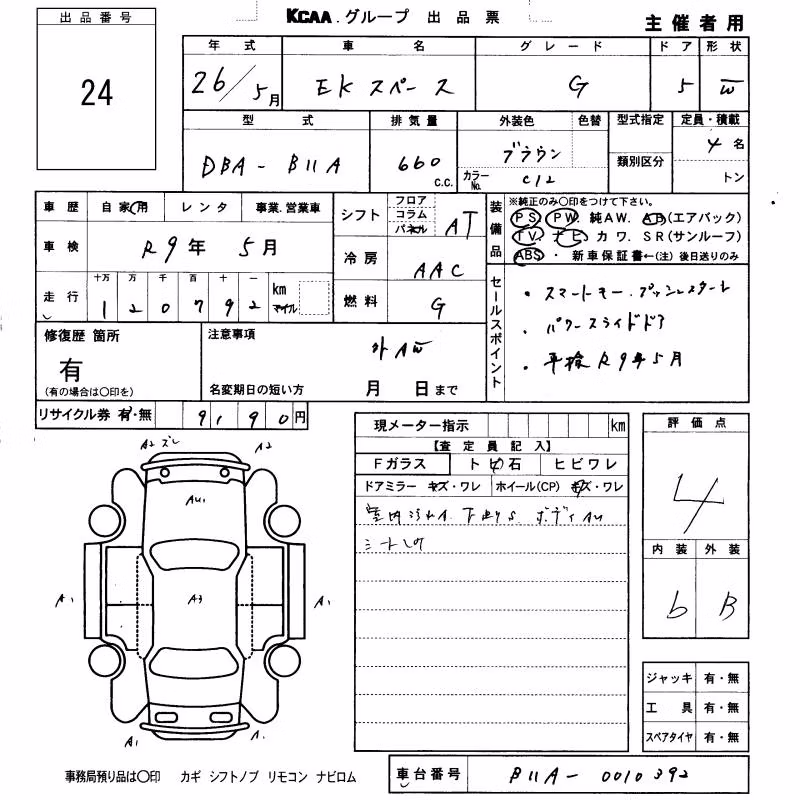 出品番号
24
KCAA.グループ 出品票
主催者用
年式 車名 グレード ドア 形状
26/5月 EKスペース G 5 W
型式 排気量 外装色 色替 型式指定 定員・積載
DBA-B11A 660 c.c. ブラウン カラーNo. C12 類別区分 4名 トン
車歴 自家用 レンタ 事業.営業車
シフト フロア コラム パネル AT
車検 R9年5月
冷房 AAC
走行 十万 万 千 百 十 一
120792 km マイル
燃料 G
装備品 ※純正のみ○印をつけて下さい。
PS PW 純AW. AB(エアバック)
TV. ナビ カワ. SR(サンルーフ)
ABS ・ 新車保証書←(注) 後日送りのみ
セールスポイント
・スマートキー.プッシュスタート
・パワースライドドア
・車検R9年5月
修復歴 箇所
有
(有の場合は○印を)
注意事項
外AW
名変期日の短い方 月 日まで
リサイクル券 有・無 9190円
現メーター指示 km
【査定員記入】
Fガラス トビ石 ヒビワレ
ドアミラー キズ・ワレ ホイール(CP) キズ・ワレ
室内汚れA. 下廻りS. ボディAU
評価点
4
内装 外装
b B
A2 ズレ A2
AU1
A1 A3 A1
A1 A1
ジャッキ 有・無
工具 有・無
スペアタイヤ 有・無
事務局預り品は○印 カギ シフトノブ リモコン ナビロム
車台番号 B11A-0010392